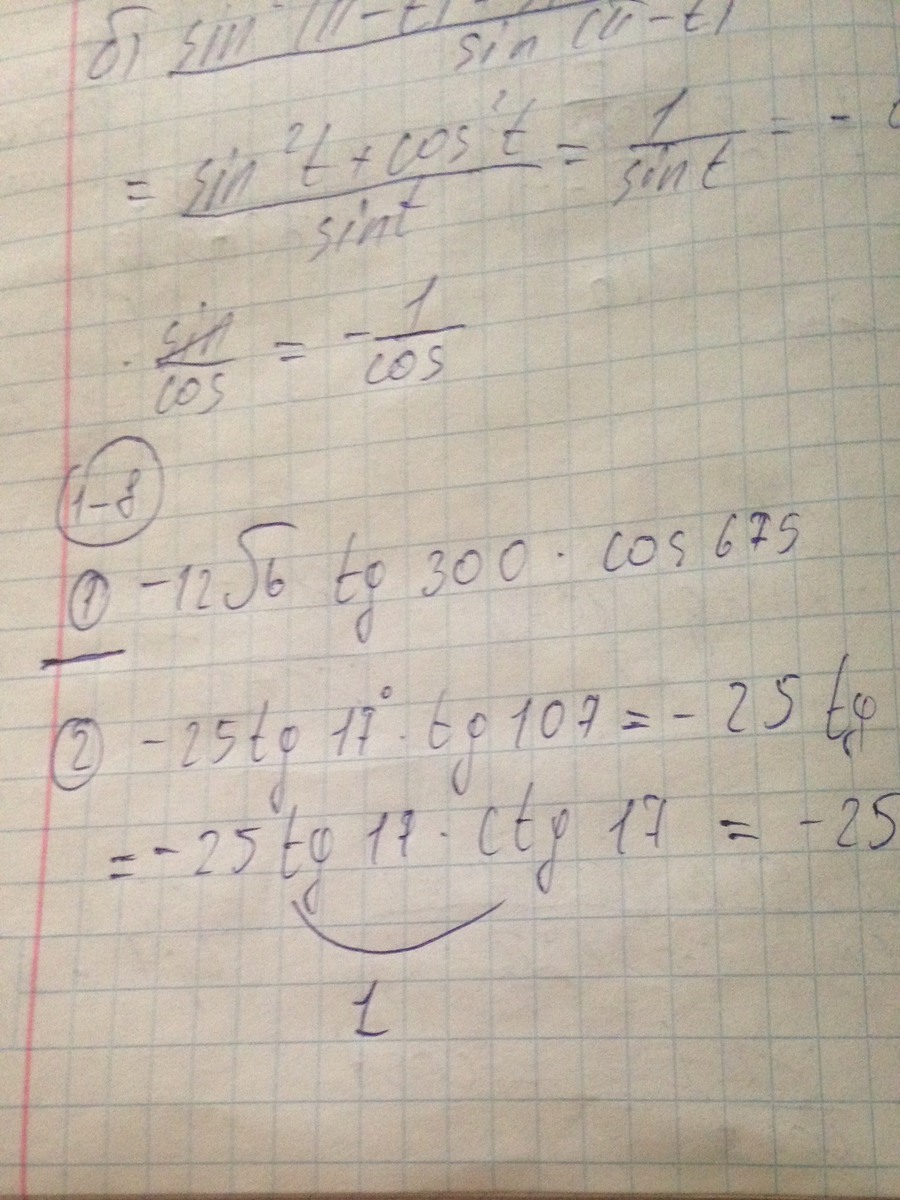 б) sin (π-t)
sin (π-t)
= sin²t + cos²t / sin t = 1 / sin t = -
· sin / cos = - 1 / cos
1-8
① -12√6 tg 300 · cos 675
② -25tg 17° · tg 107 = - 25 tg
= - 25 tg 17 · ctg 17 = -25
1